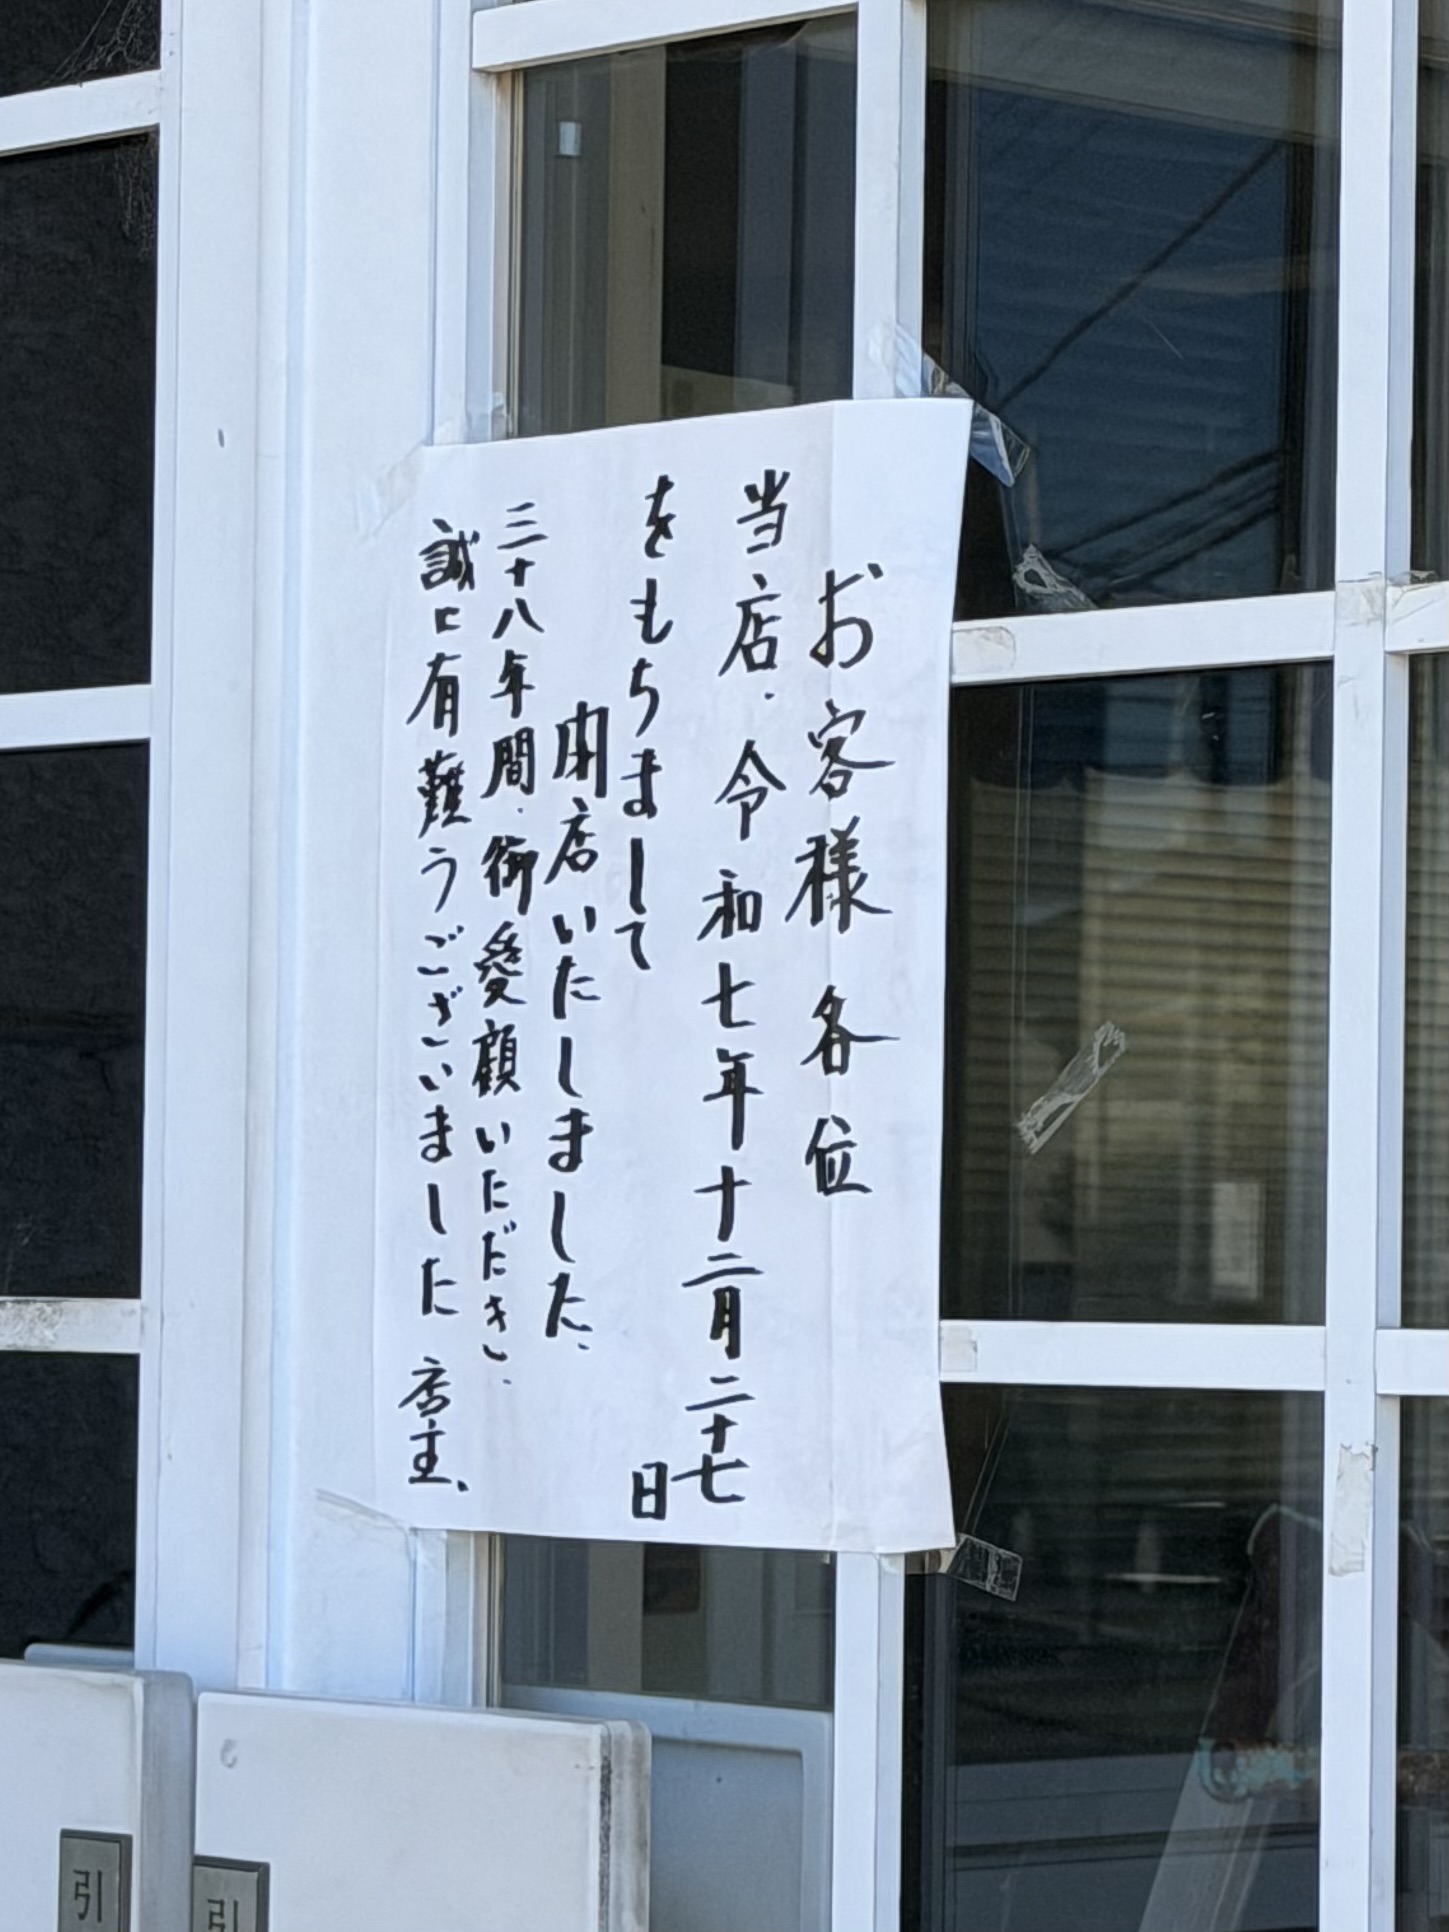 お客様各位
当店、令和七年十二月二十七
日
をもちまして
閉店いたしました、
三十八年間、御愛顧いただき、
誠に有難うございました 店主、
引
引